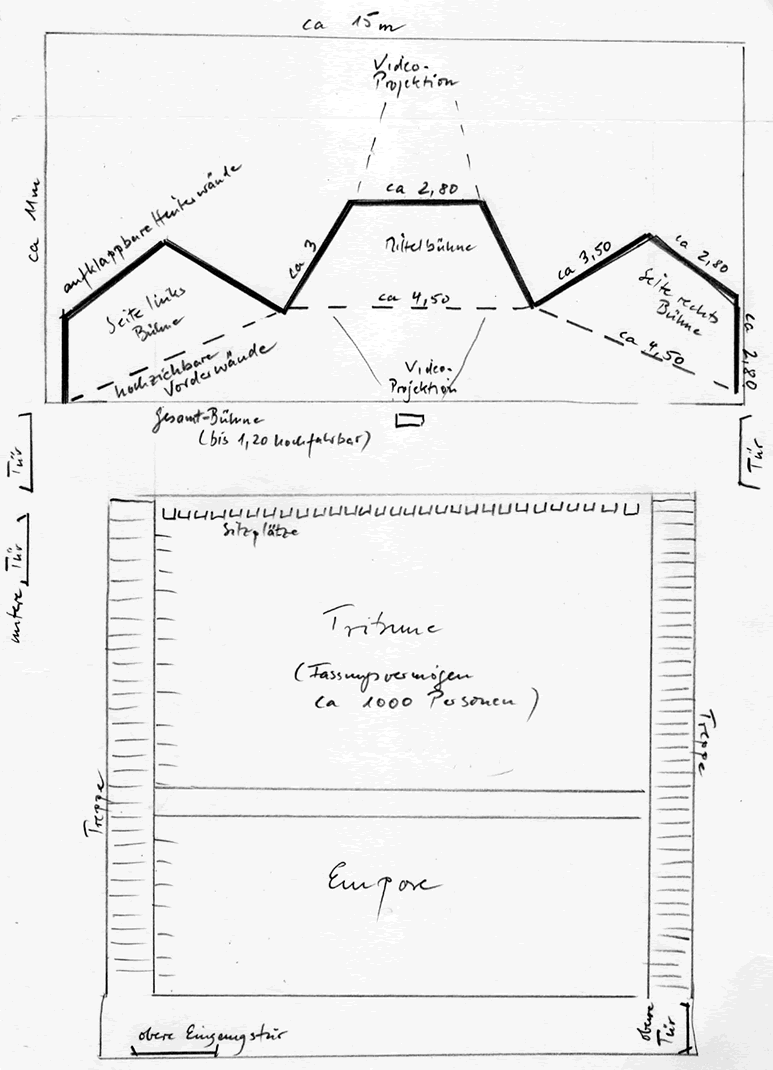 ca 15 m
Video-
Projektion
ca 11 m
aufklappbare Hinterwände
ca 2,80
ca 3
Mittelbühne
ca 3,50
ca 2,80
Seite links
Bühne
Seite rechts
Bühne
ca 4,50
ca 4,50
ca 2,80
hochziehbare
Vorderwände
Video-
Projektion
Gesamt-Bühne
(bis 1,20 hochfahrbar)
Tür
Tür
untere Tür
Sitzplätze
Tribüne
(Fassungsvermögen
ca 1000 Personen)
Treppe
Treppe
Empore
obere Eingangstür
obere
Tür